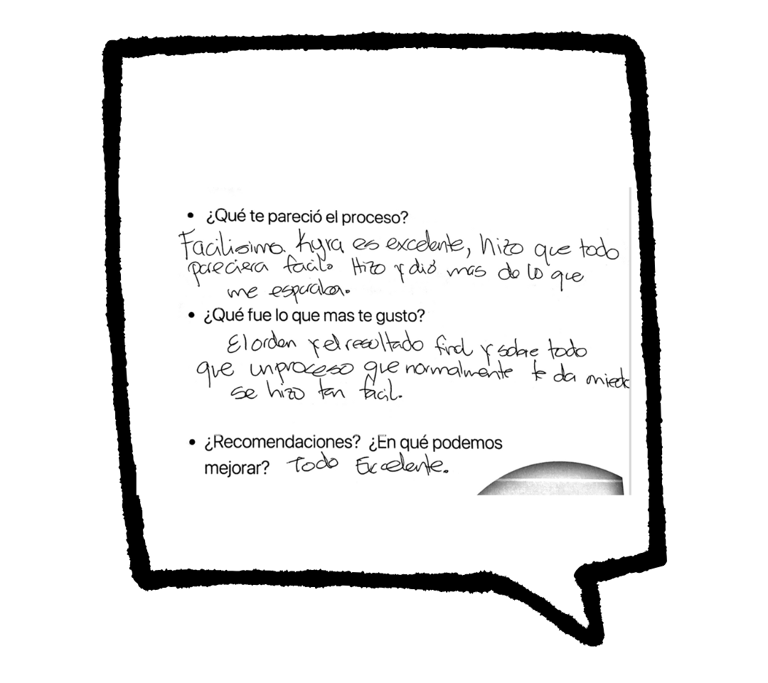 • ¿Qué te pareció el proceso?
Facilisimo. Kyra es excelente, hizo que todo
pareciera facil. Hizo y dió mas de lo que
me esperaba.
• ¿Qué fue lo que mas te gusto?
El orden y el resultado final y sobre todo
que un proceso que normalmente te da miedo
se hizo tan fácil.
• ¿Recomendaciones? ¿En qué podemos
mejorar? Todo Excelente.